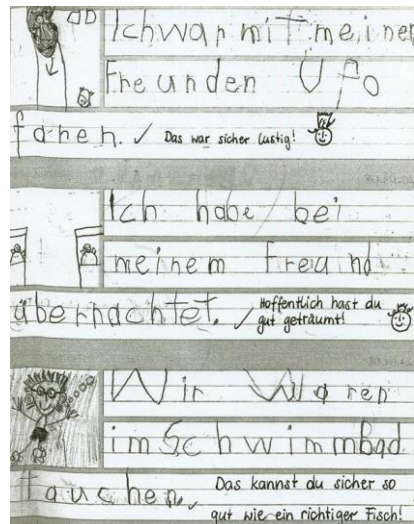 Ich war mit meinen
Freunden Ufo
faren. ✓ Das war sicher lustig!
Ich habe bei
meinem Freund
übernachtet. ✓ Hoffentlich hast du
gut geträumt!
Wir Waren
im Schwimmbad
tauchen. ✓ Das kannst du sicher so
gut wie ein richtiger Fisch!